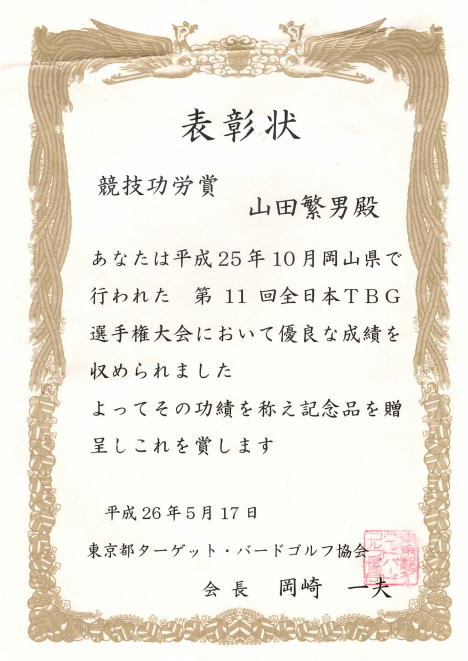 表彰状
競技功労賞
山田繁男殿
あなたは平成25年10月岡山県で
行われた 第11回全日本TBG
選手権大会において優良な成績を
収められました
よってその功績を称え記念品を贈
呈しこれを賞します
平成26年5月17日
東京都ターゲット・バードゴルフ協会
会長 岡崎 一夫